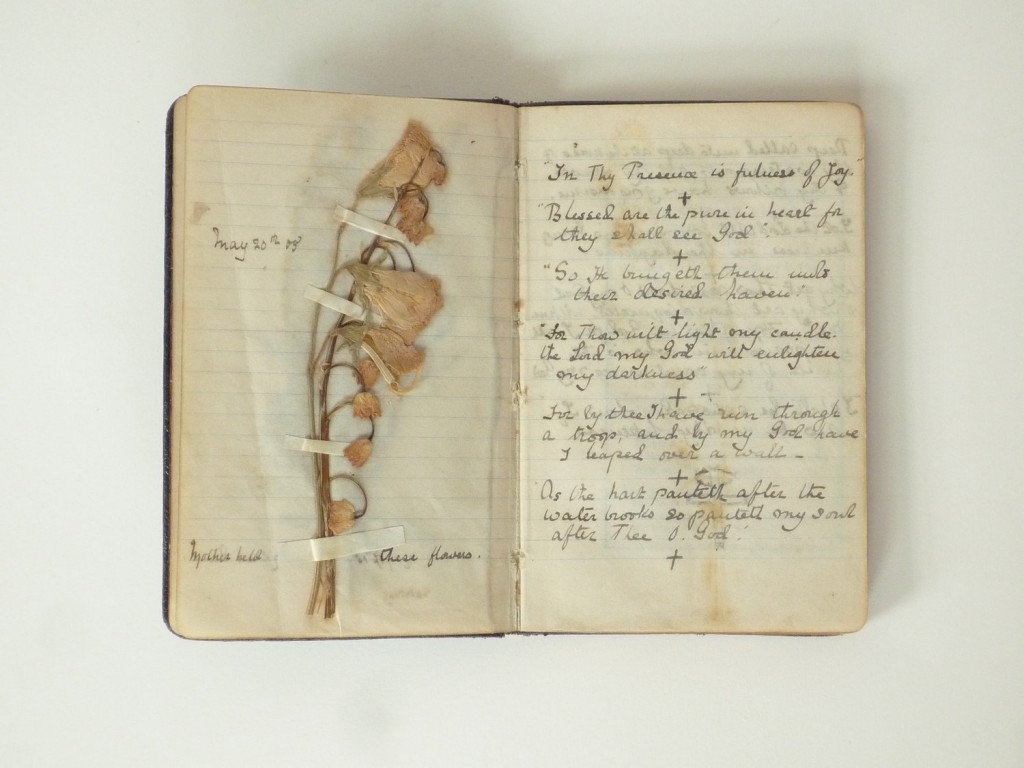 May 20th 08
Mother held these flowers.
"In Thy Presence is fulness of Joy.
"Blessed are the pure in heart for
they shall see God".
"So He bringeth them unto
their desired haven."
"For Thou wilt light my candle.
the Lord my God will enlighten
my darkness"
For by thee I have run through
a troop, and by my God have
I leaped over a wall -
As the hart panteth after the
water brooks so panteth my soul
after Thee O. God!